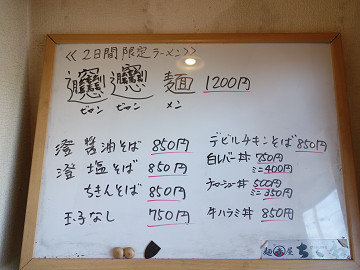 ≪2日間限定ラーメン≫
𰻞𰻞麺 1200円
ビャン ビャン メン
澄 醤油そば 850円
澄 塩そば 850円
ちきんそば 850円
玉子なし 750円
デビルチキンそば 850円
白レバー丼 750円
ミニ 400円
チャーシュー丼 500円
ミニ 350円
牛ハラミ丼 850円
麺 屋